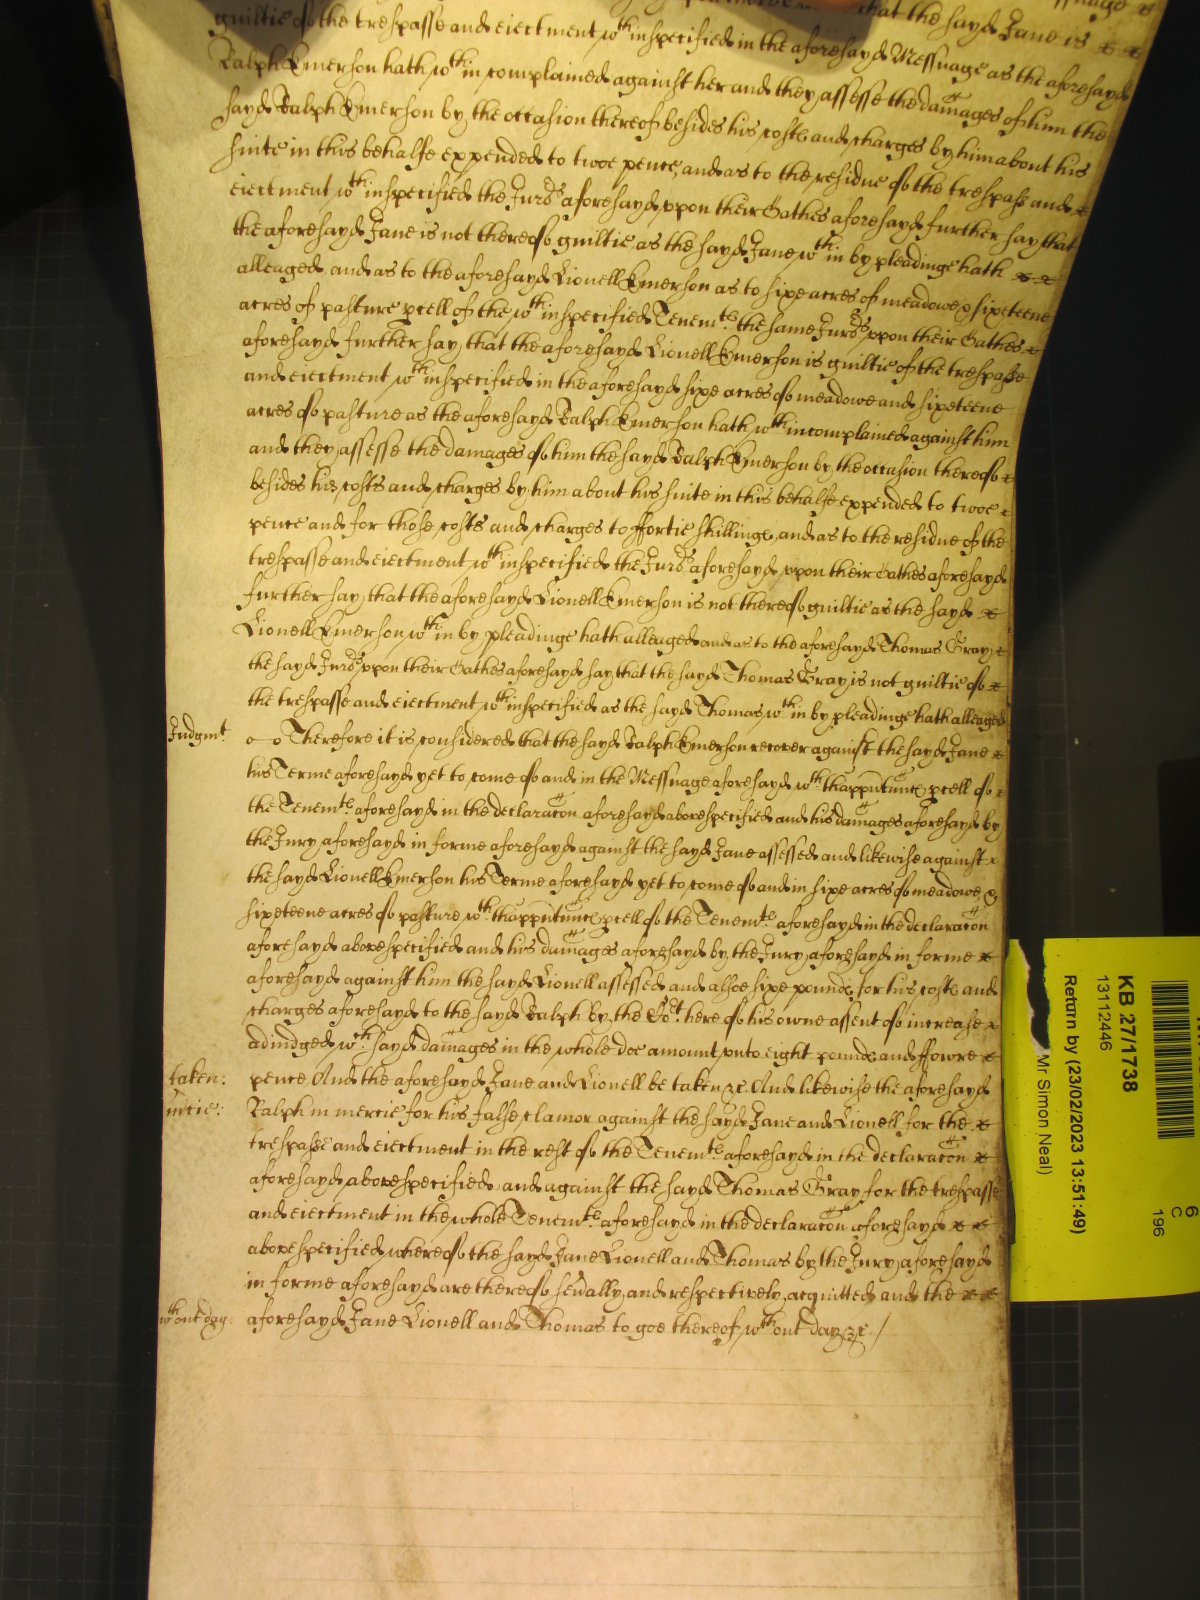 that the sayd Jane is
guiltie of the trespasse and eiectment wthinspecified in the aforesayd Messuage as the aforesayd
Ralph Emerson hath wthin complained against her and they assesse the damages of him the
sayd Ralph Emerson by the occasion thereof besides his costs and charges by him about his
suite in this behalfe expended to twoe pence, and as to the residue of the trespasse and
eiectment wthinspecified the Jurds aforesayd vpon their Oathes aforesayd further say that
the aforesayd Jane is not thereof guiltie as the sayd Jane wthin by pleadinge hath
alleaged and as to the aforesayd Lionell Emerson as to sixe acres of meadowe & sixeteene
acres of pasture pcell of the wthinspecified Tenemts the same Jurds vpon their Oathes
aforesayd further say that the aforesayd Lionell Emerson is guiltie of the trespasse
and eiectment wthinspecified in the aforesayd sixe acres of meadowe and sixeteene
acres of pasture as the aforesayd Ralph Emerson hath wthin complained against him
and they assesse the damages of him the sayd Ralph Emerson by the occasion thereof
besides his costs and charges by him about his suite in this behalfe expended to twoe
pence and for those costs and charges to ffortie shillings, and as to the residue of the
trespasse and eiectment wthinspecified the Jurds aforesayd vpon their Oathes aforesayd
further say that the aforesayd Lionell Emerson is not thereof guiltie as the sayd
Lionell Emerson wthin by pleadinge hath alleaged and as to the aforesayd Thomas Gray
the sayd Jurds vpon their Oathes aforesayd say that the sayd Thomas Gray is not guiltie of
the trespasse and eiectment wthinspecified as the sayd Thomas wthin by pleadinge hath alleaged
Judgmt: Therefore it is considered that the sayd Ralph Emerson recover against the sayd Jane
his Terme aforesayd yet to come of and in the Messuage aforesayd wth thapputuncs pcell of
the Tenemts aforesayd in the declaracon aforesayd abovespecified and his damages aforesayd by
the Jury aforesayd in forme aforesayd against the sayd Jane assessed and likewise against
the sayd Lionell Emerson his Terme aforesayd yet to come of and in sixe acres of meadowe &
sixeteene acres of pasture wth thapputuncs pcell of the Tenemts aforesayd in the declaracon
aforesayd abovespecified and his damages aforesayd by the Jury aforesayd in forme
aforesayd against him the sayd Lionell assessed and alsoe sixe pounds for his costs and
charges aforesayd to the sayd Ralph by the Cort here of his owne assent of increase
adiudged wch sayd damages in the whole doe amount vnto eight pounds and ffowre
taken: pence And the aforesayd Jane and Lionell be taken &c And likewise the aforesayd
mcie: Ralph in mercie for his false clamor against the sayd Jane and Lionell for the
trespasse and eiectment in the rest of the Tenemts aforesayd in the declaracon
aforesayd abovespecified and against the sayd Thomas Gray for the trespasse
and eiectment in the whole Tenemts aforesayd in the declaracon aforesayd
abovespecified whereof the sayd Jane Lionell and Thomas by the Jury aforesayd
in forme aforesayd are thereof sevally and respectively acquitted and the
wthout day: aforesayd Jane Lionell and Thomas to goe thereof wthout day &c /
KB 27/1738
13112446
Return by (23/02/2023 13:51:49)
Mr Simon Neal)
6
C
196